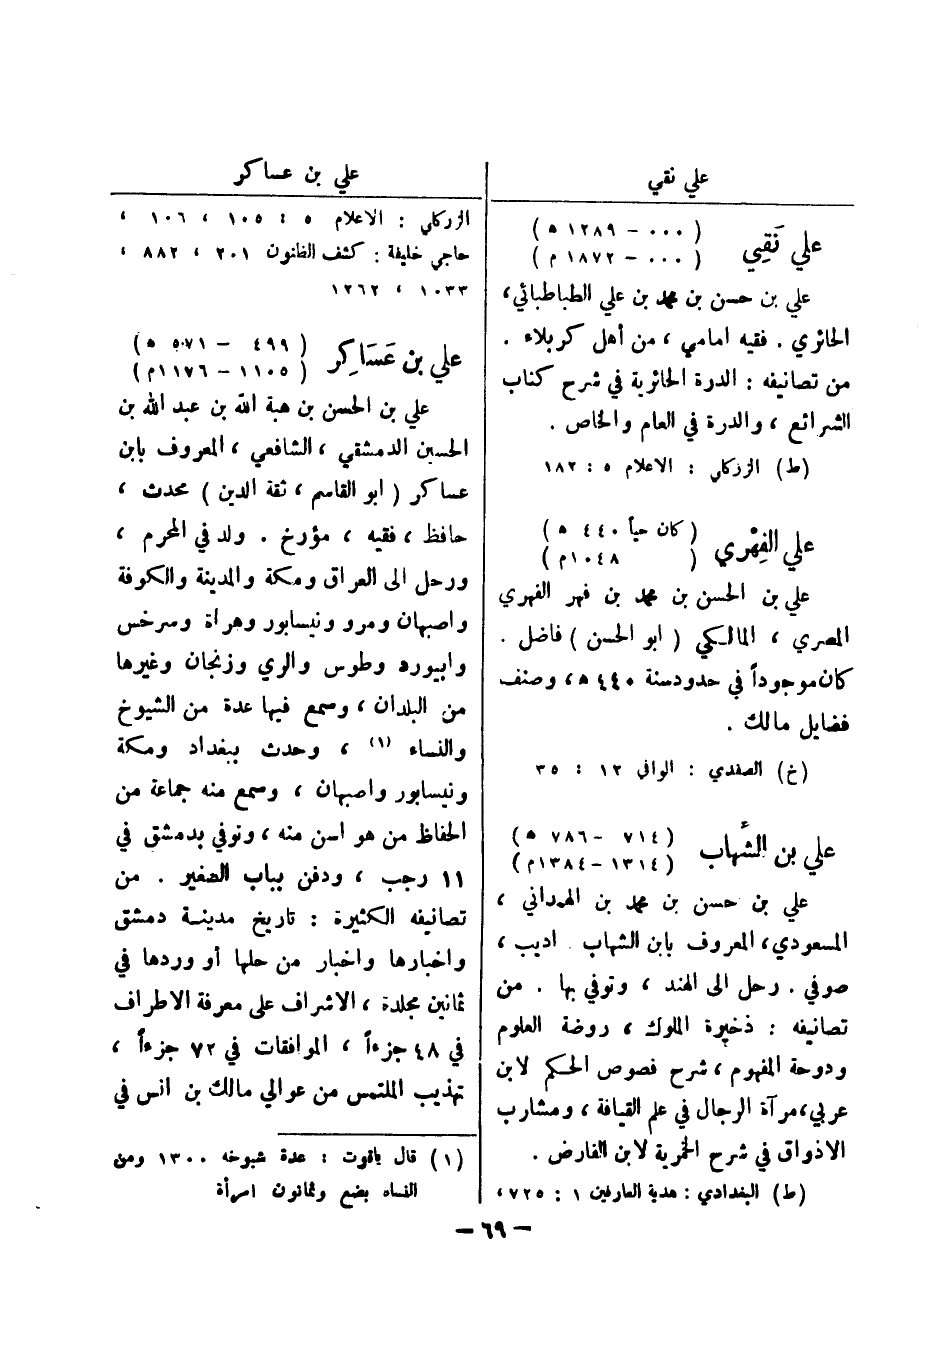 علي نقي
علي نَقِي
( ٠٠٠ – ١٢٨٩ ه )
( ٠٠٠ – ١٨٧٢ م )
علي بن حسن بن محمد بن علي الطباطبائي،
الحائري . فقيه امامي ، من أهل كربلاء .
من تصانيفه : الدرة الحائرية في شرح كتاب
الشرائع ، والدرة في العام والخاص .
(ط) الزركلي : الاعلام ٥ : ١٨٢
علي الفِهْري
( كان حياً ٤٤٠ ه )
( ١٠٤٨م )
علي بن الحسن بن محمد بن فهر الفهري
المصري ، المالكي ( ابو الحسن ) فاضل .
كان موجوداً في حدود سنة ٤٤٠ ه ، وصنف
فضايل مالك .
(خ) الصفدي : الوافي ١٢ : ٣٥
علي بن الشهاب
( ٧١٤ – ٧٨٦ ه )
( ١٣١٤ – ١٣٨٤م )
علي بن حسن بن محمد بن الهمداني ،
المسعودي، المعروف بابن الشهاب . اديب ،
صوفي . رحل الى الهند ، وتوفي بها . من
تصانيفه : ذخيرة الملوك ، روضة العلوم
ودوحة المفهوم ، شرح فصوص الحكم لابن
عربي، مرآة الرجال في علم القيافة ، ومشارب
الاذواق في شرح الخمرية لابن الفارض .
(ط) البغدادي : هدية العارفين ١ : ٧٢٥ ،
علي بن عساكر
الزركلي : الاعلام ٥ : ١٠٥ ، ١٠٦ ،
حاجي خليفة : كشف الظنون ٢٠١ ، ٨٨٢ ،
١٠٣٣ ، ١٢٦٢
علي بن عَسَاكِر
( ٤٩٩ – ٥٧١ ه )
( ١١٠٥ – ١١٧٦م )
علي بن الحسن بن هبة الله بن عبد الله بن
الحسين الدمشقي ، الشافعي ، المعروف بابن
عساكر ( ابو القاسم ، ثقة الدين ) محدث ،
حافظ ، فقيه ، مؤرخ . ولد في المحرم ،
ورحل الى العراق ومكة والمدينة والكوفة
واصبهان ومرو ونيسابور وهراة وسرخس
وابيورد وطوس والري وزنجان وغيرها
من البلدان ، وسمع فيها عدة من الشيوخ
والنساء (١) ، وحدث ببغداد ومكة
ونيسابور واصبهان ، وسمع منه جماعة من
الحفاظ من هو اسن منه ، وتوفي بدمشق في
١١ رجب ، ودفن بباب الصغير . من
تصانيفه الكثيرة : تاريخ مدينة دمشق
واخبارها واخبار من حلها أو وردها في
ثمانين مجلدة ، الاشراف على معرفة الاطراف
في ٤٨ جزءاً ، الموافقات في ٧٢ جزءاً ،
تهذيب الملتمس من عوالي مالك بن انس في
(١) قال ياقوت : عدة شيوخه ١٣٠٠ ومن
النساء بضع وثمانون امرأة
– ٦٩ –